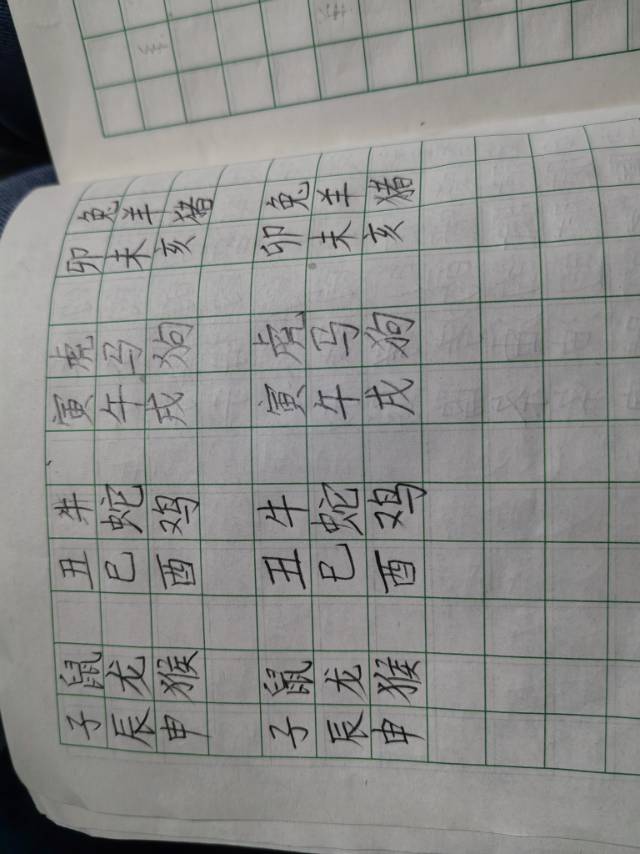 子鼠 丑牛 寅虎 卯兔
辰龙 巳蛇 午马 未羊
申猴 酉鸡 戌狗 亥猪
子鼠 丑牛 寅虎 卯兔
辰龙 巳蛇 午马 未羊
申猴 酉鸡 戌狗 亥猪